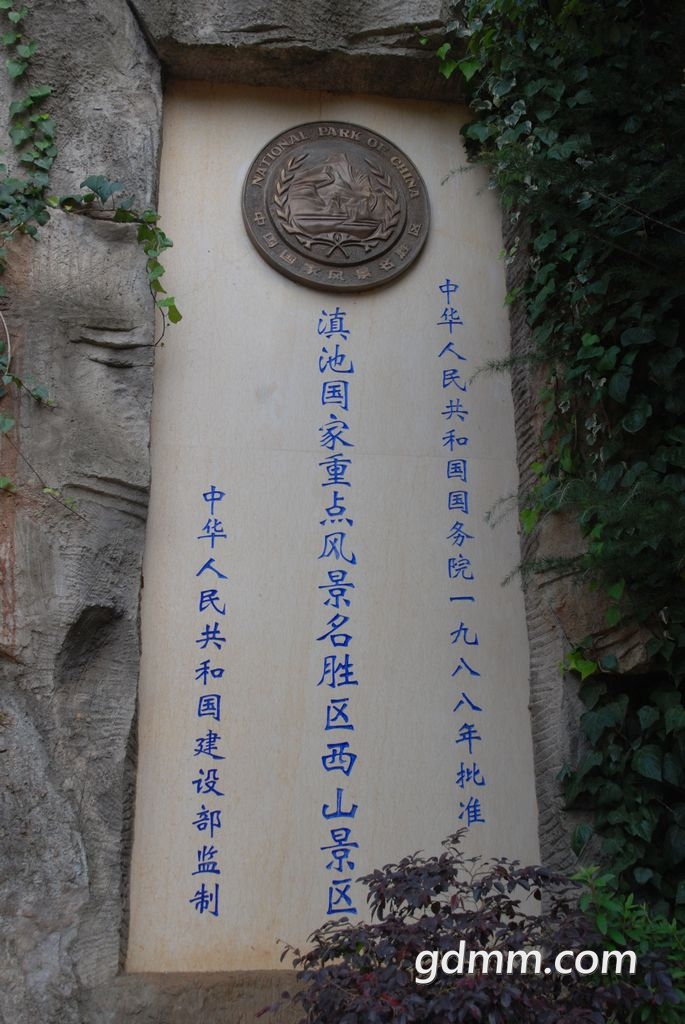 NATIONAL PARK OF CHINA
中国国家风景名胜区
中华人民共和国国务院一九八八年批准
滇池国家重点风景名胜区西山景区
中华人民共和国建设部监制
gdmm.com